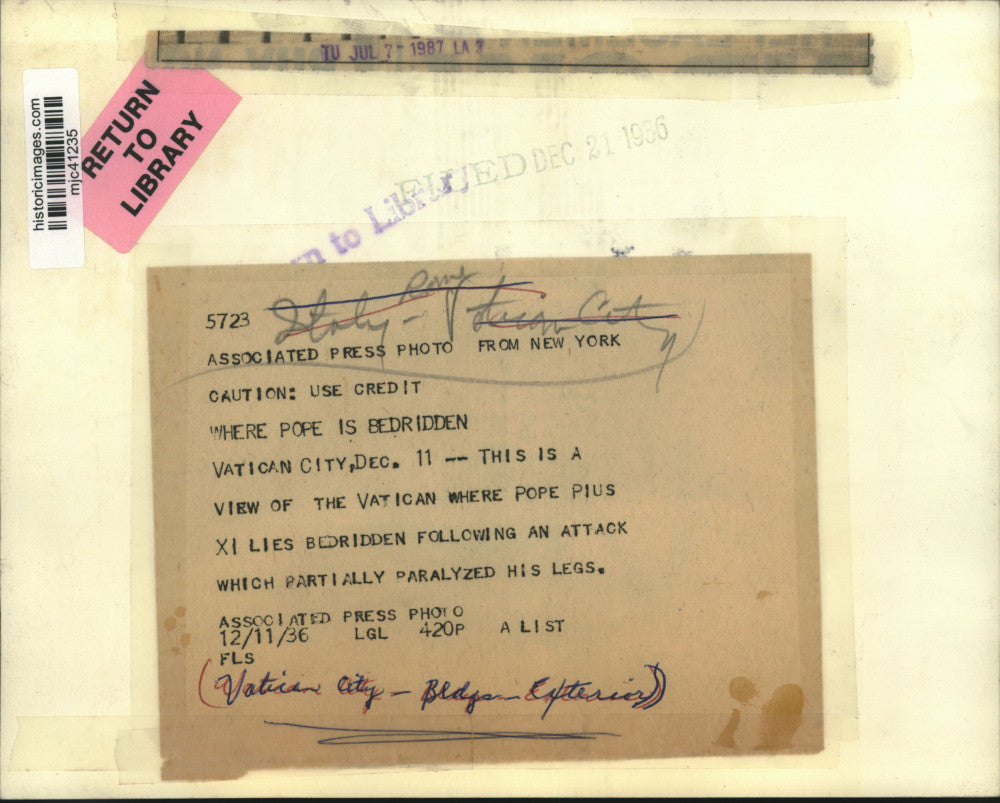 TU JUL 7-1987 LA
historicimages.com
mjc41235
RETURN
TO
LIBRARY
FILED DEC 21 1936
to Library
5723
Italy - Rome Vatican City
ASSOCIATED PRESS PHOTO FROM NEW YORK
CAUTION: USE CREDIT
WHERE POPE IS BEDRIDDEN
VATICAN CITY, DEC. 11 -- THIS IS A
VIEW OF THE VATICAN WHERE POPE PIUS
XI LIES BEDRIDDEN FOLLOWING AN ATTACK
WHICH PARTIALLY PARALYZED HIS LEGS.
ASSOCIATED PRESS PHOTO
12/11/36 LGL 420P A LIST
FLS
(Vatican City - Bldgs - Exterior)